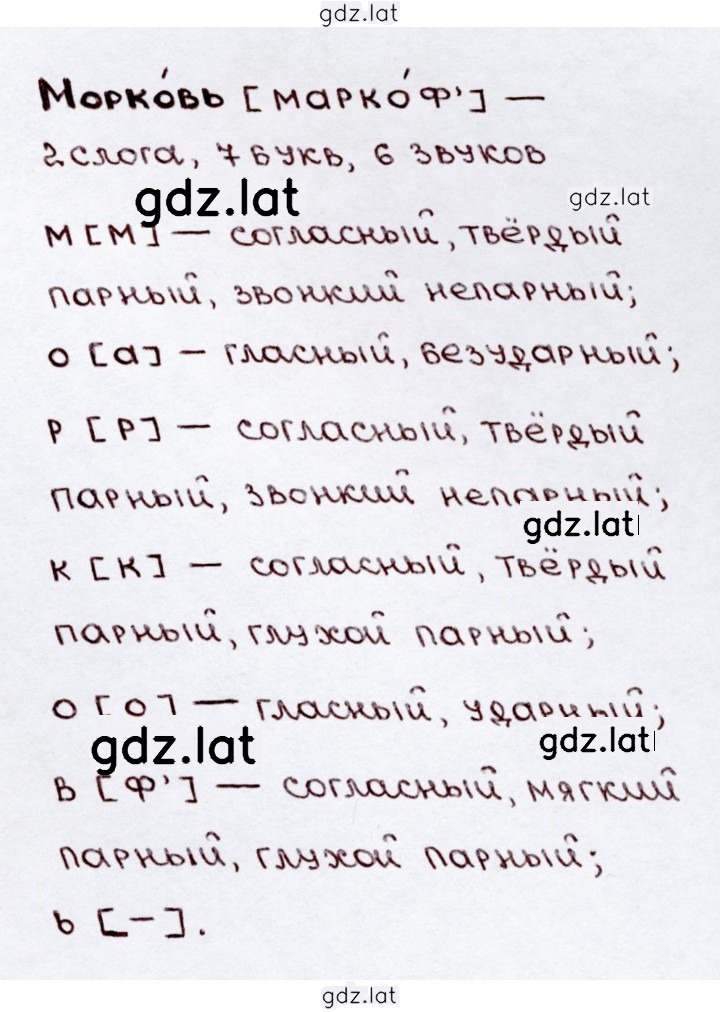 gdz.lat
Морко́вь [марко́ф'] —
2 слога, 7 букв, 6 звуков
gdz.lat
gdz.lat
м [м] — согласный, твёрдый
парный, звонкий непарный;
о [а] — гласный, безударный;
р [р] — согласный, твёрдый
парный, звонкий непарный;
gdz.lat
к [к] — согласный, твёрдый
парный, глухой парный;
о [о] — гласный, ударный;
gdz.lat
gdz.lat
в [ф'] — согласный, мягкий
парный, глухой парный;
ь [–].
gdz.lat